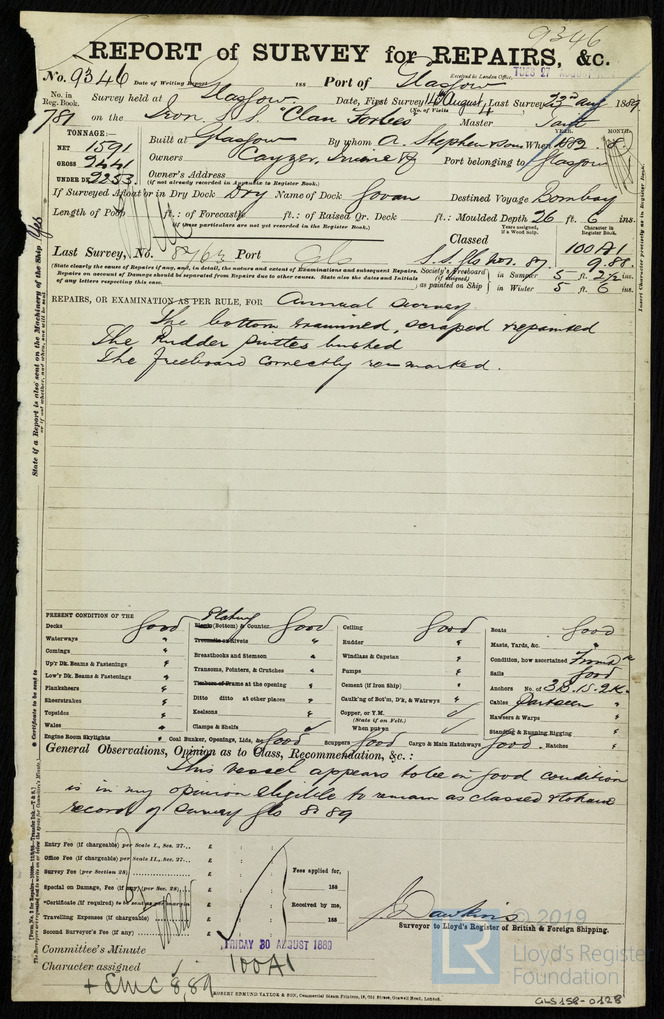 9346
REPORT of SURVEY for REPAIRS, &c.
No. 9346 Date of Writing Report 188 Port of Glasgow Received in London Office, TUES 27 AUGUST
No. in Reg. Book. Survey held at Glasgow. Date, First Survey 16th August Last Survey 23rd Aug 1889
(No. of Visits 4)
781 on the Iron S.S. "Clan Forbes" Master
TONNAGE:— Built at Glasgow By whom A. Stephen & Sons When 1882. 8
YEAR. MONTH.
NET 1591
GROSS 2441 Owners Cayzer, Irvine & Co Port belonging to Glasgow
UNDER DK 2253. Owner's Address
(if not already recorded in Appendix to Register Book.)
If Surveyed Afloat or in Dry Dock Dry Name of Dock Govan Destined Voyage Bombay
Length of Poop ft.: of Forecastle ft.: of Raised Qr. Deck ft.: Moulded Depth 26 ft. 6 ins.
(if these particulars are not yet recorded in the Register Book.)
Years assigned, if a Wood Ship. Character in Register Book.
Classed 100A1
Last Survey, No. 8763 Port Gls S.S. Gls No3. 87. 9.88
(State clearly the cause of Repairs if any, and, in detail, the nature and extent of Examinations and subsequent Repairs.
Repairs on account of Damage should be separated from Repairs due to other causes. State also the dates and Initials
of any letters respecting this case.
Society's Freeboard (if assigned) as painted on Ship in Summer 5 ft. 2½ ins.
in Winter 5 ft. 6 ins.
REPAIRS, OR EXAMINATION AS PER RULE, FOR Annual Survey
The bottom examined, scraped & repainted
The Rudder pintles bushed
The freeboard correctly re-marked.
State if a Report is also sent on the Machinery of the Ship Yes
Insert Character precisely as in Register Book.
PRESENT CONDITION OF THE
Decks good
Waterways "
Comings "
Up'r Dk. Beams & Fastenings "
Low'r Dk. Beams & Fastenings "
Planksheers "
Sheerstrakes "
Topsides "
Wales "
Engine Room Skylights "
Plating
Plank (Bottom) & Counter good
Treenails or Rivets "
Breasthooks and Stemson "
Transoms, Pointers, & Crutches "
Timbers or Frame at the opening "
Ditto ditto at other places "
Keelsons "
Clamps & Shelfs
Coal Bunker, Openings, Lids, &c. good
Ceiling good
Rudder "
Windlass & Capstan "
Pumps "
Cement (if Iron Ship) "
Caulk'ng of Bot'm, D'k, & Watrwys "
Copper, or Y.M.
(State if on Felt.)
When put on
Scuppers good Cargo & Main Hatchways good. Hatches "
Boats good
Masts, Yards, &c. "
Condition, how ascertained From dk
Sails good
Anchors No. of 3B.1S.2K.
Cables Part seen "
Hawsers & Warps "
Standing & Running Rigging "
General Observations, Opinion as to Class, Recommendation, &c.:
This vessel appears to be in good condition
is in my opinion eligible to remain as classed & to have
record of survey Gls 8.89
Certificate to be sent to
Entry Fee (if chargeable) per Scale I., Sec. 27... £ : :
Office Fee (if chargeable) per Scale II., Sec. 27... £ : :
Survey Fee (per Section 28) £ : :
Special on Damage, Fee (if any) (per Sec. 28) £ : :
Certificate (if required) £ : :
Travelling Expenses (if chargeable) £ : :
Second Surveyor's Fee (if any) £ : :
Fees applied for, 188
Received by me, 188
J. Dawkins
Surveyor to Lloyd's Register of British & Foreign Shipping.
Committee's Minute FRIDAY 30 AUGUST 1889
Character assigned 100A1
+ LMC 8,89
ROBERT EDMUND TAYLOR & SON, Commercial Steam Printers, 19, Old Street, Goswell Road, London.
© 2019
LR
Lloyd's Register
Foundation
GLS158-0128